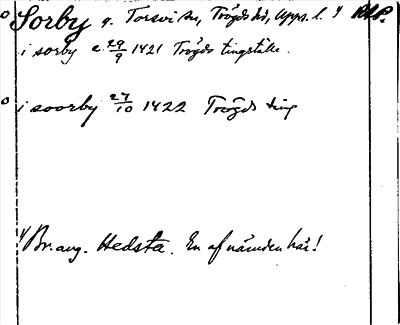 Sorby g. Torsviske, Trögds hd, Upps. l. 1) RAP.
i sorby e. 29/9 1421 Trögds tingställe.
i soorby 27/10 1422 Trögds ting
1) Br. ang. Hedsta. En af nämnden här!